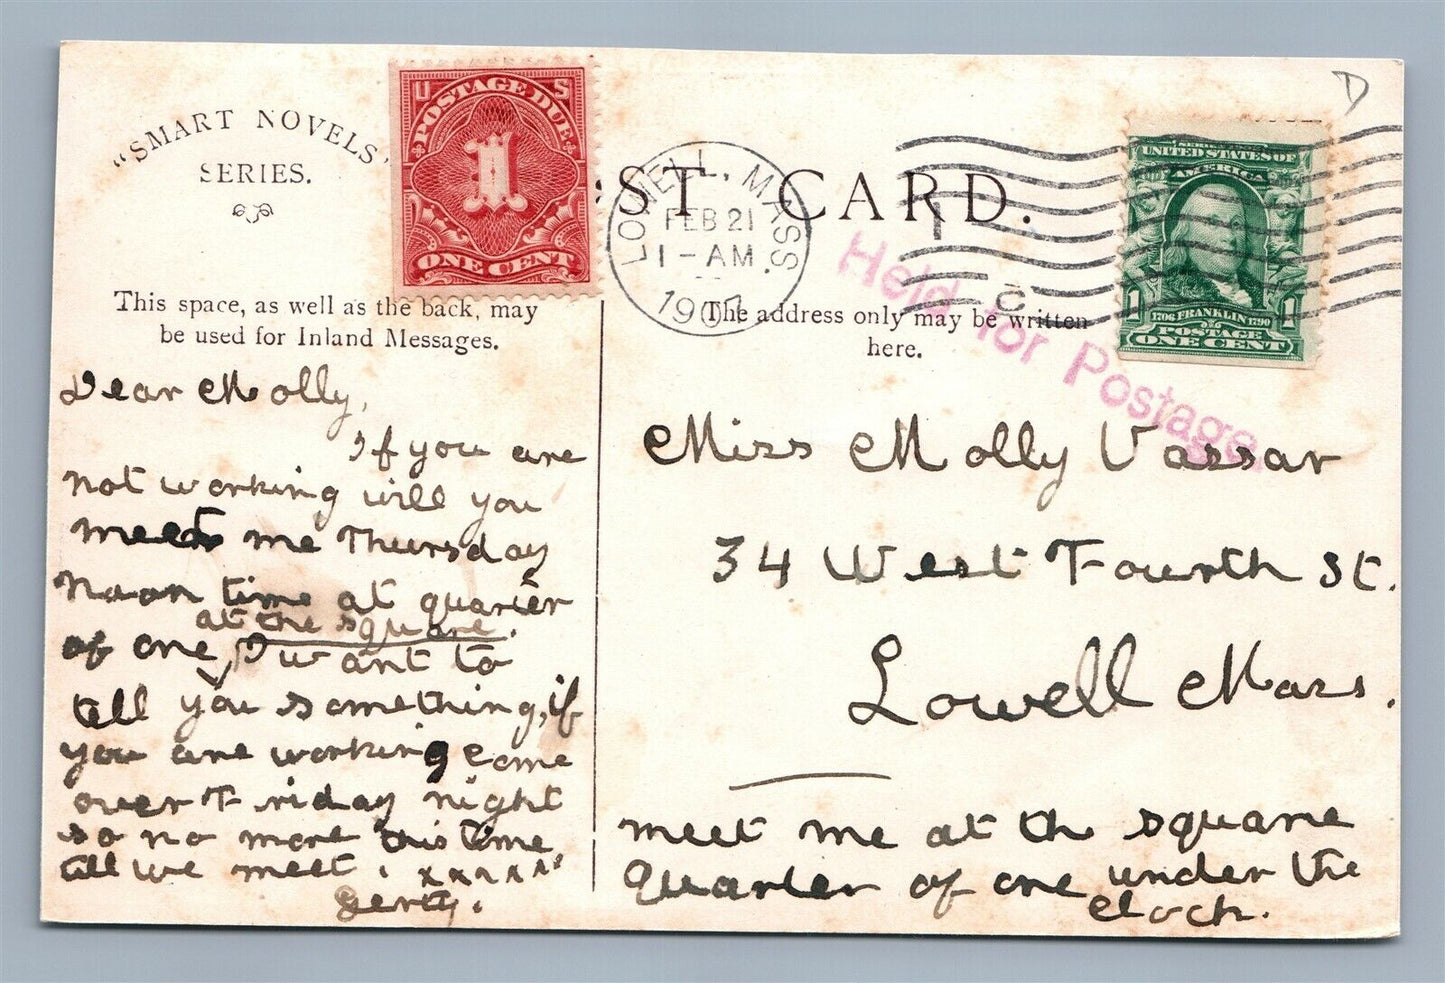 "SMART NOVELS"
SERIES.
U S
POSTAGE DUE
1
ONE CENT
ST CARD.
LOWELL, MASS.
FEB 21
1-AM
1907
Held for Postage.
D
SERIES 1902
UNITED STATES OF
AMERICA
1 1
1706 FRANKLIN 1790
POSTAGE
ONE CENT
This space, as well as the back, may
be used for Inland Messages.
The address only may be written
here.
Dear Molly,
If you are
not working will you
meet me Thursday
noon time at quarter
at the square.
of one, I want to
tell you something, if
you are working come
over Friday night
so no more this time
till we meet. xxxxxx
Gerty.
Miss Molly Vassar
34 West Fourth St.
Lowell Mass.
meet me at the square
quarter of one under the
clock.